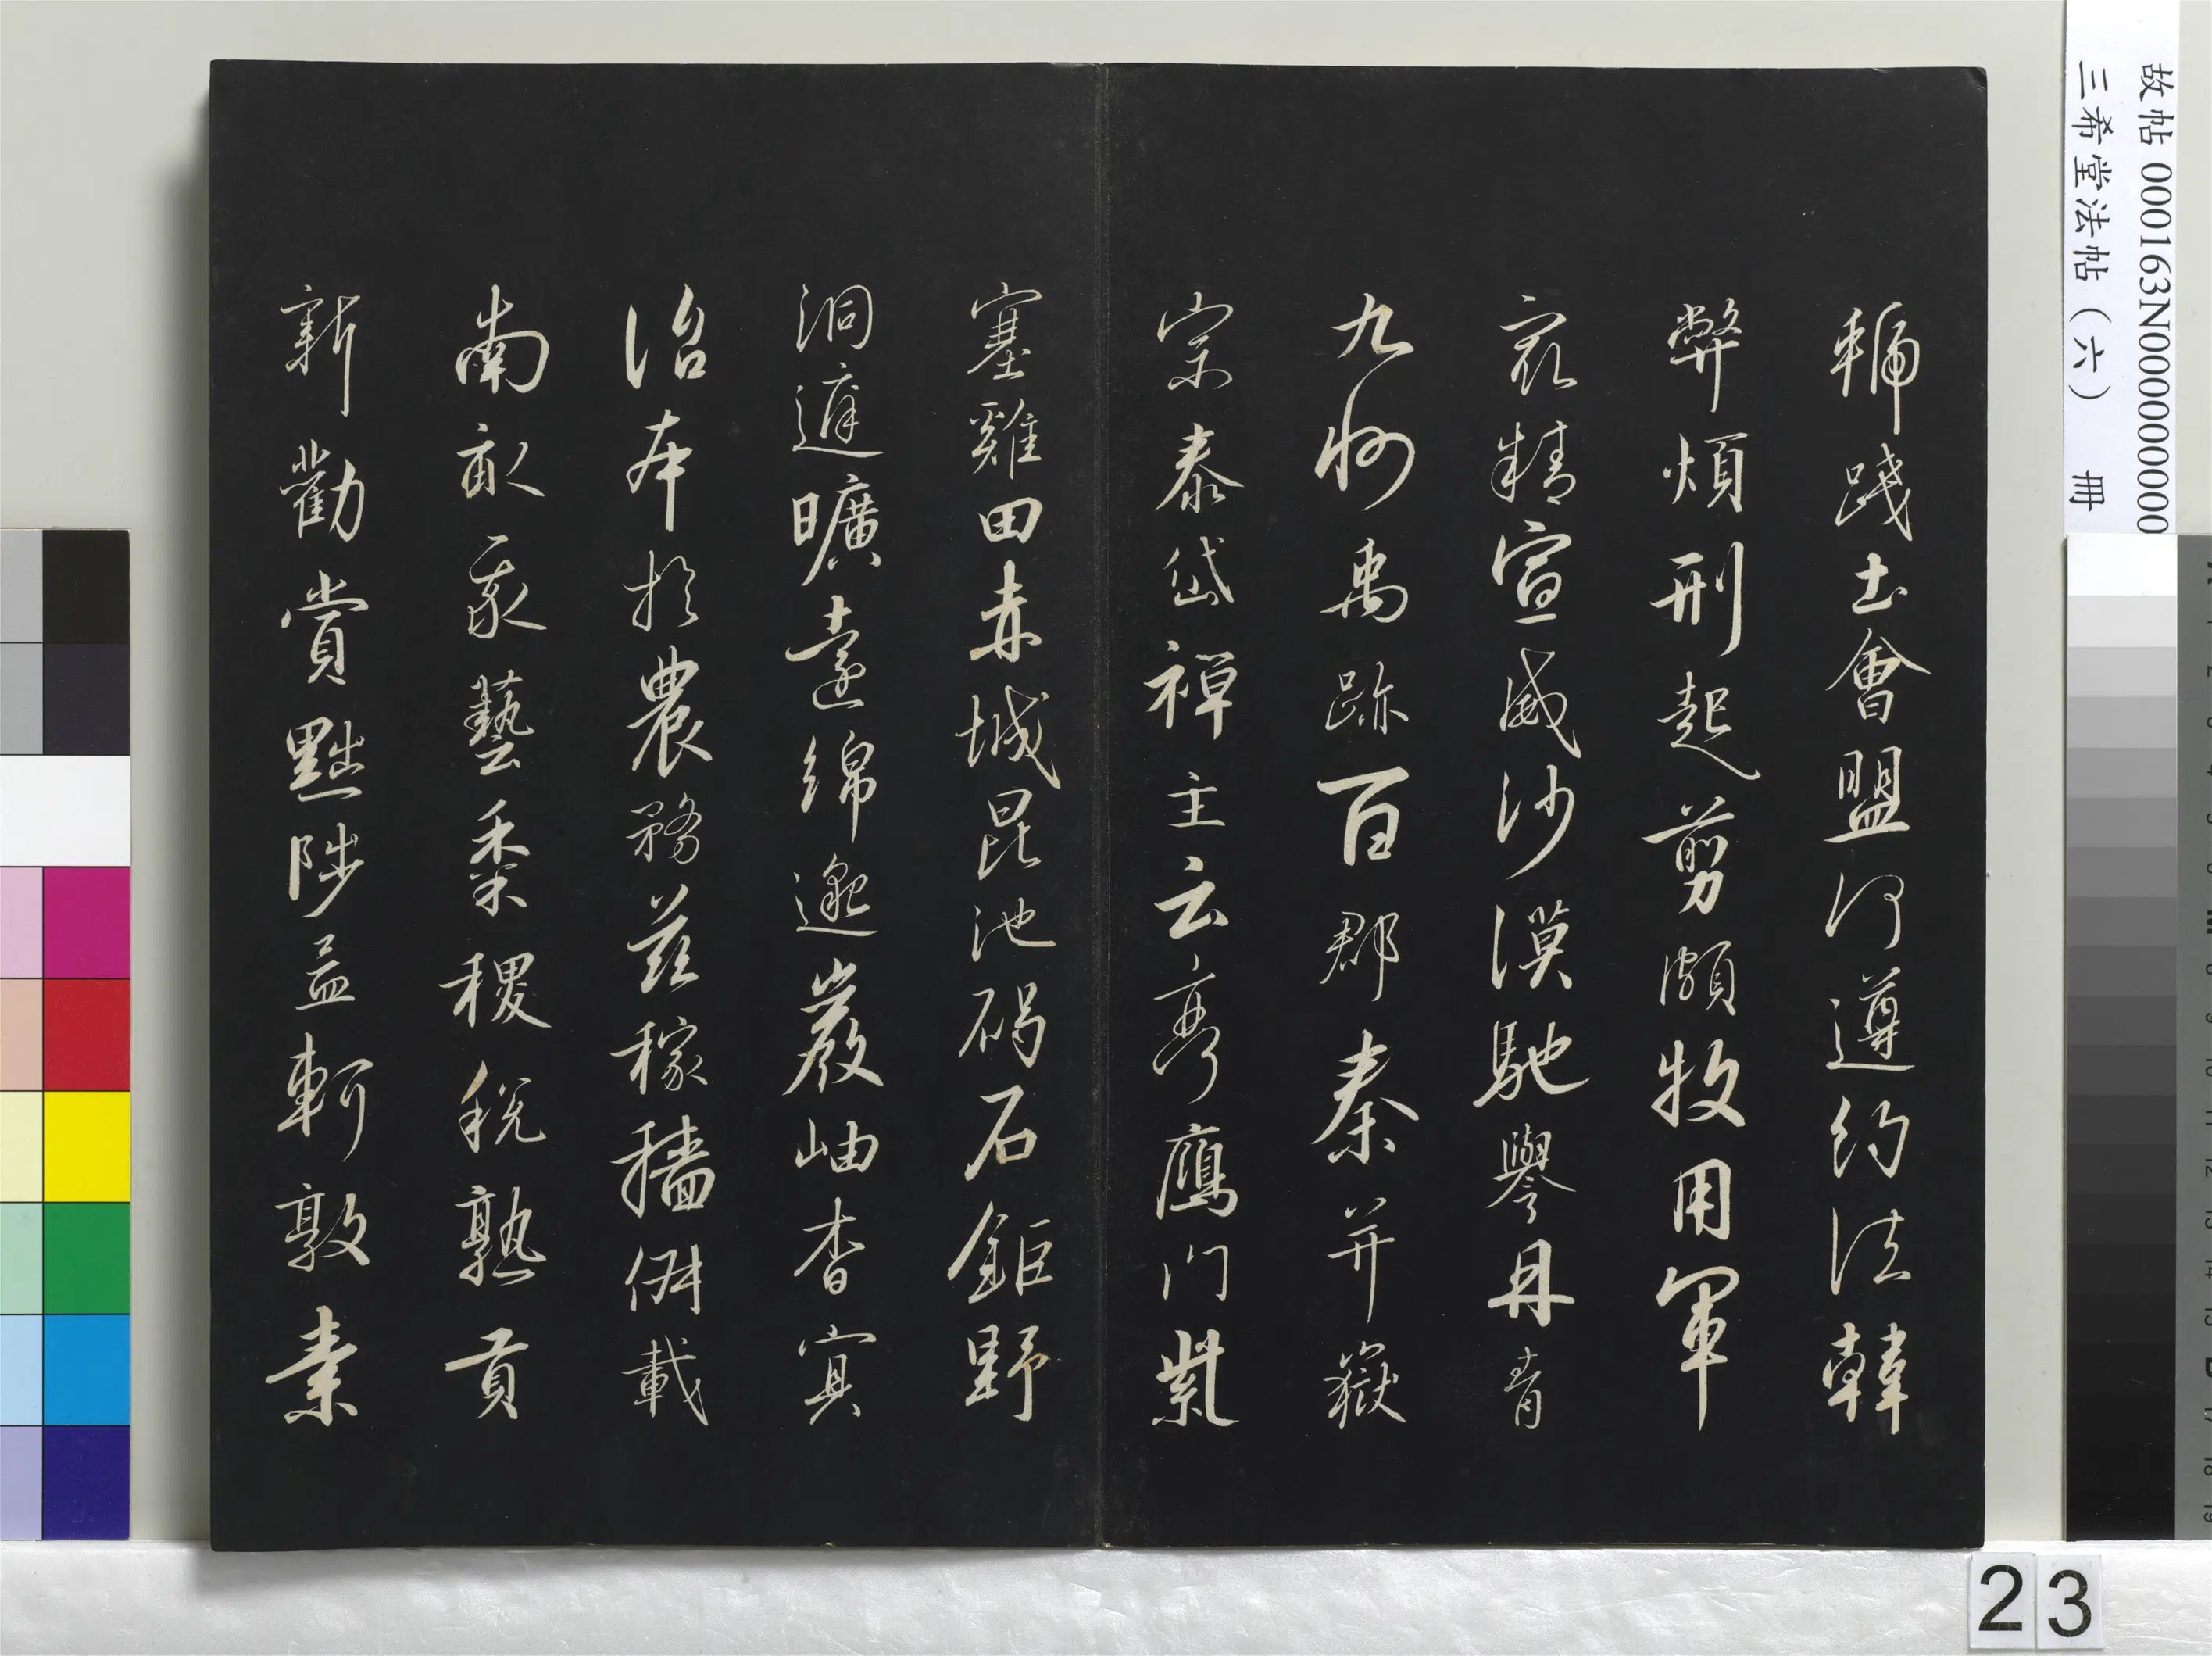 故帖 000163N000000000
三希堂法帖（六） 冊
虢踐土會盟何遵約法韓
弊煩刑起剪頗牧用軍
最精宣威沙漠馳譽丹青
九州禹跡百郡秦并嶽
宗泰岱禪主云亭鴈門紫
塞雞田赤城昆池碣石鉅野
洞庭曠遠綿邈巖岫杳冥
治本於農務茲稼穡俶載
南畝我藝黍稷稅熟貢
新勸賞黜陟孟軻敦素
23